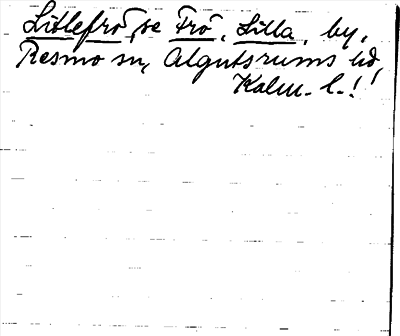 Littlefrö, se Frö, Lilla, by,
Resmo sn, Algutsrums hd,
Kalm. l.!